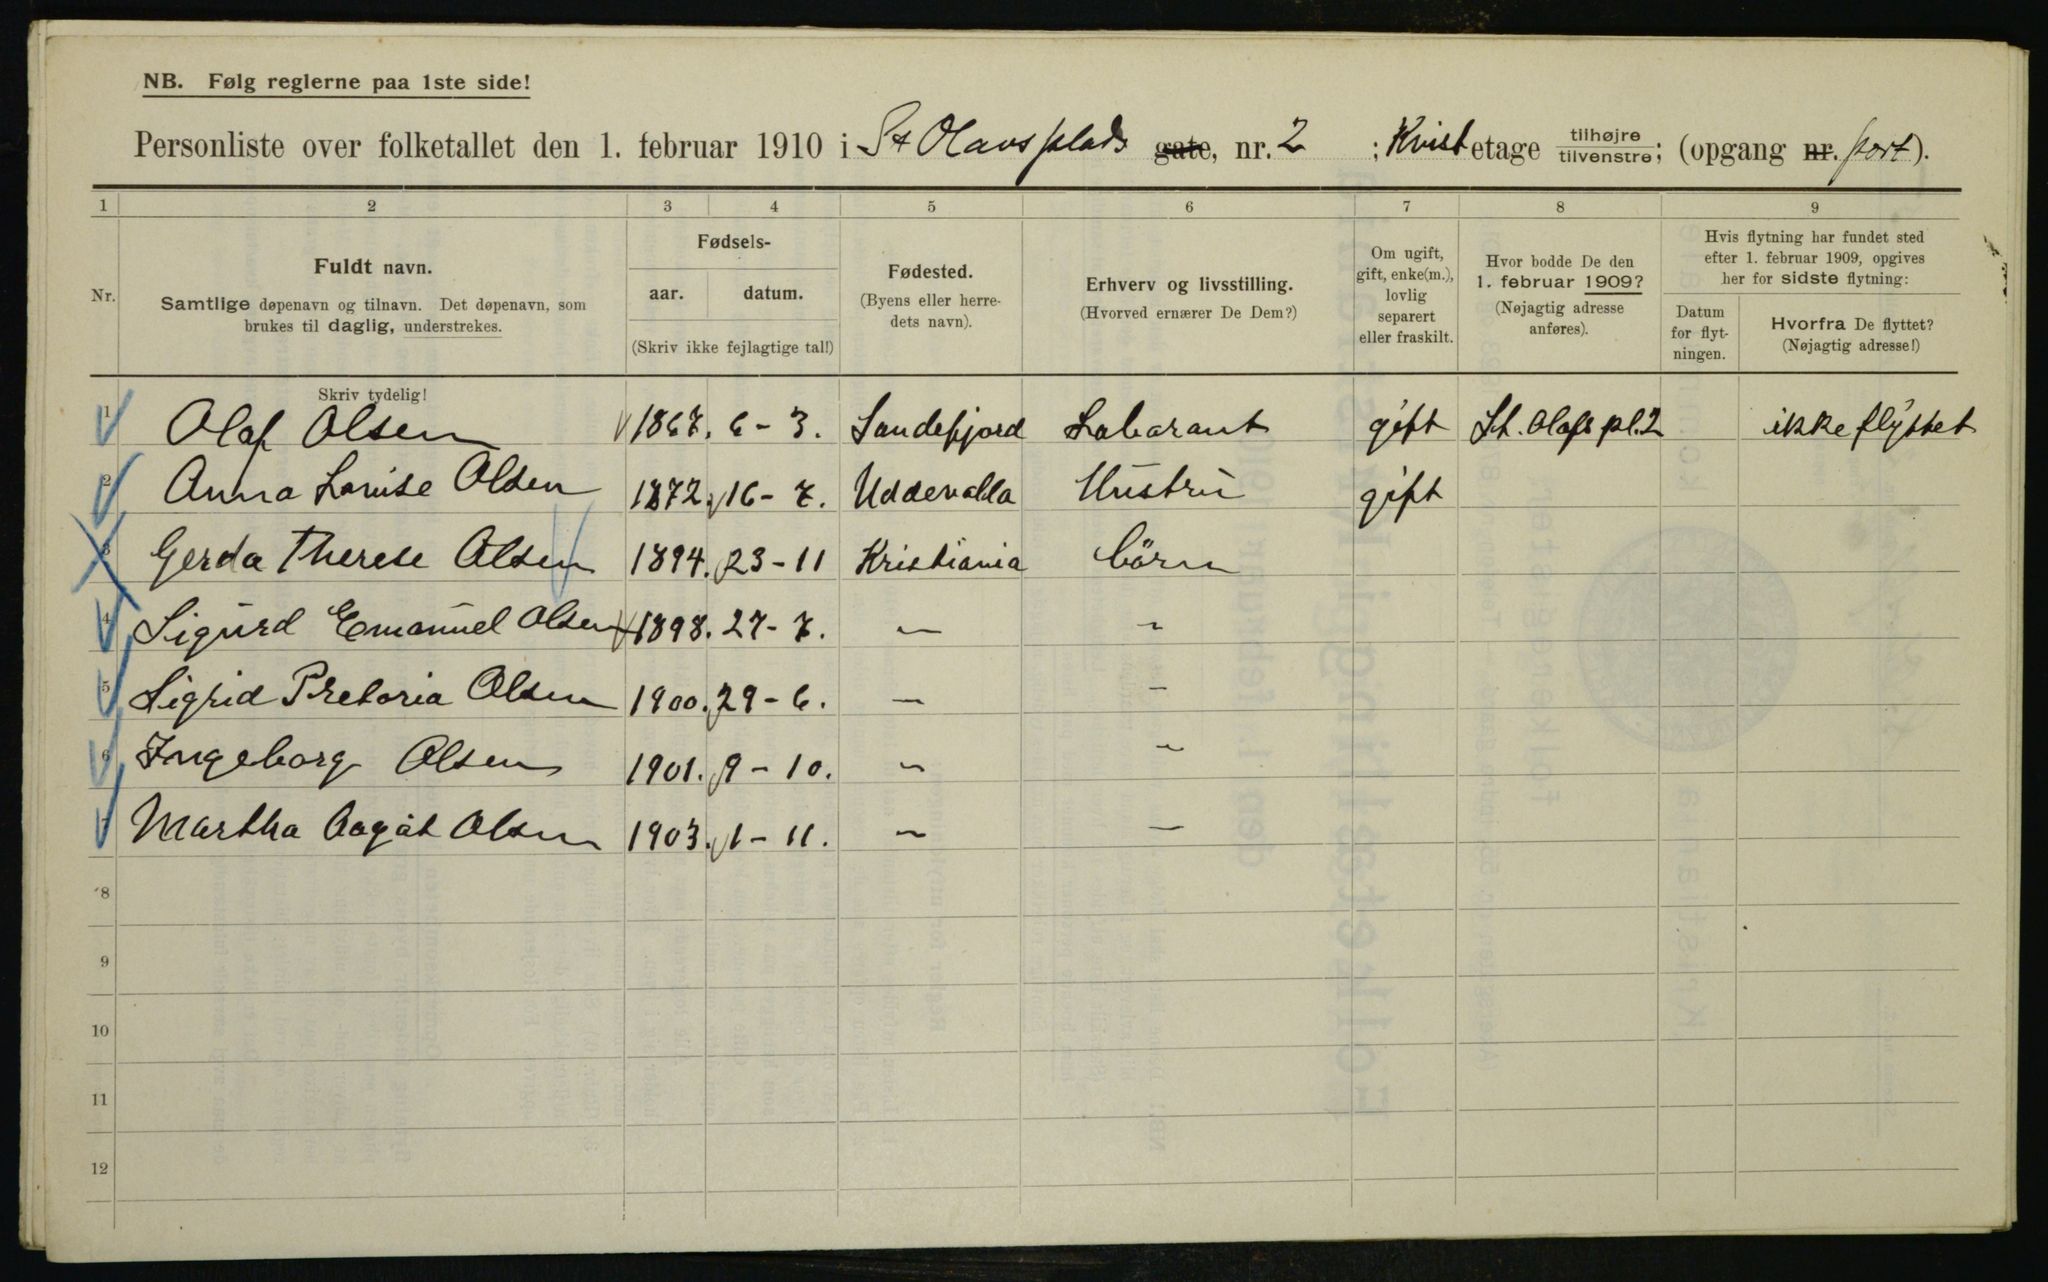 NB. Følg reglerne paa 1ste side!
Personliste over folketallet den 1. februar 1910 i St Olavsplads gate, nr. 2 ; Kvist etage tilhøjre tilvenstre; (opgang nr. port).
1 2 3 4 5 6 7 8 9
Nr.
Fuldt navn.
Samtlige døpenavn og tilnavn. Det døpenavn, som
brukes til daglig, understrekes.
Skriv tydelig!
Fødsels-
aar. datum.
(Skriv ikke fejlagtige tal!)
Fødested.
(Byens eller herre-
dets navn).
Erhverv og livsstilling.
(Hvorved ernærer De Dem?)
Om ugift,
gift, enke(m.),
lovlig
separert
eller fraskilt.
Hvor bodde De den
1. februar 1909?
(Nøjagtig adresse
anføres).
Hvis flytning har fundet sted
efter 1. februar 1909, opgives
her for sidste flytning:
Datum
for flyt-
ningen.
Hvorfra De flyttet?
(Nøjagtig adresse!)
1 Olaf Olsen 1867. 6-3. Sandefjord Laborant gift St. Olafs pl. 2 ikke flyttet
2 Anna Lovise Olsen 1872. 16-7. Uddevalla Hustru gift
3 Gerda Therese Olsen 1894. 23-11 Kristiania börn
4 Sigurd Emanuel Olsen 1898. 27-7. — "
5 Sigrid Pretoria Olsen 1900. 29-6. — —
6 Ingeborg Olsen 1901. 9-10. — "
7 Martha Aagåt Olsen 1903. 1-11. — —
8
9
10
11
12